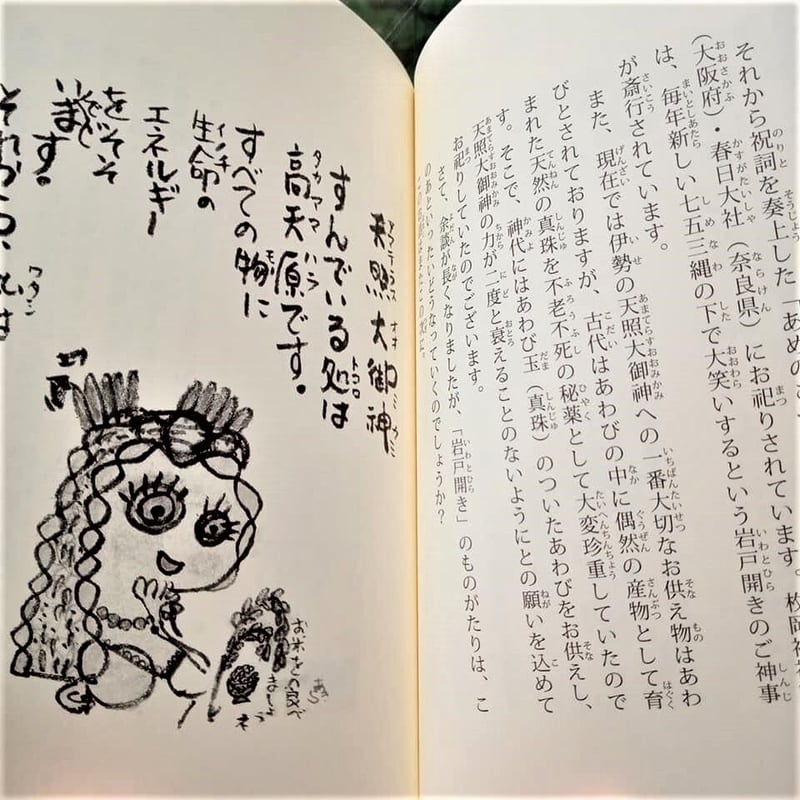 それから祝詞を奏上した「あめの
(大阪府)・春日大社(奈良県)にお祀りされています。枚岡神社
は、毎年新しい七五三縄の下で大笑いするという岩戸開きのご神事
が斎行されています。
また、現在では伊勢の天照大御神への一番大切なお供え物はあわ
びとされておりますが、古代はあわびの中に偶然の産物として育
まれた天然の真珠を不老不死の秘薬として大変珍重していたので
す。そこで、神代にはあわび玉(真珠)のついたあわびをお供えし、
天照大御神の力が二度と衰えることのないようにとの願いを込めて
お祀りしていたのでございます。
さて、余談が長くなりましたが、「岩戸開き」のものがたりは、こ
のあといったいどうなっていくのでしょうか?
天照大御神
すんでいる処は
高天原です。
すべての物に
生命の
エネルギー
をそそ
いでいま
す。
それから、
お米を食べ
ましょう
ネ